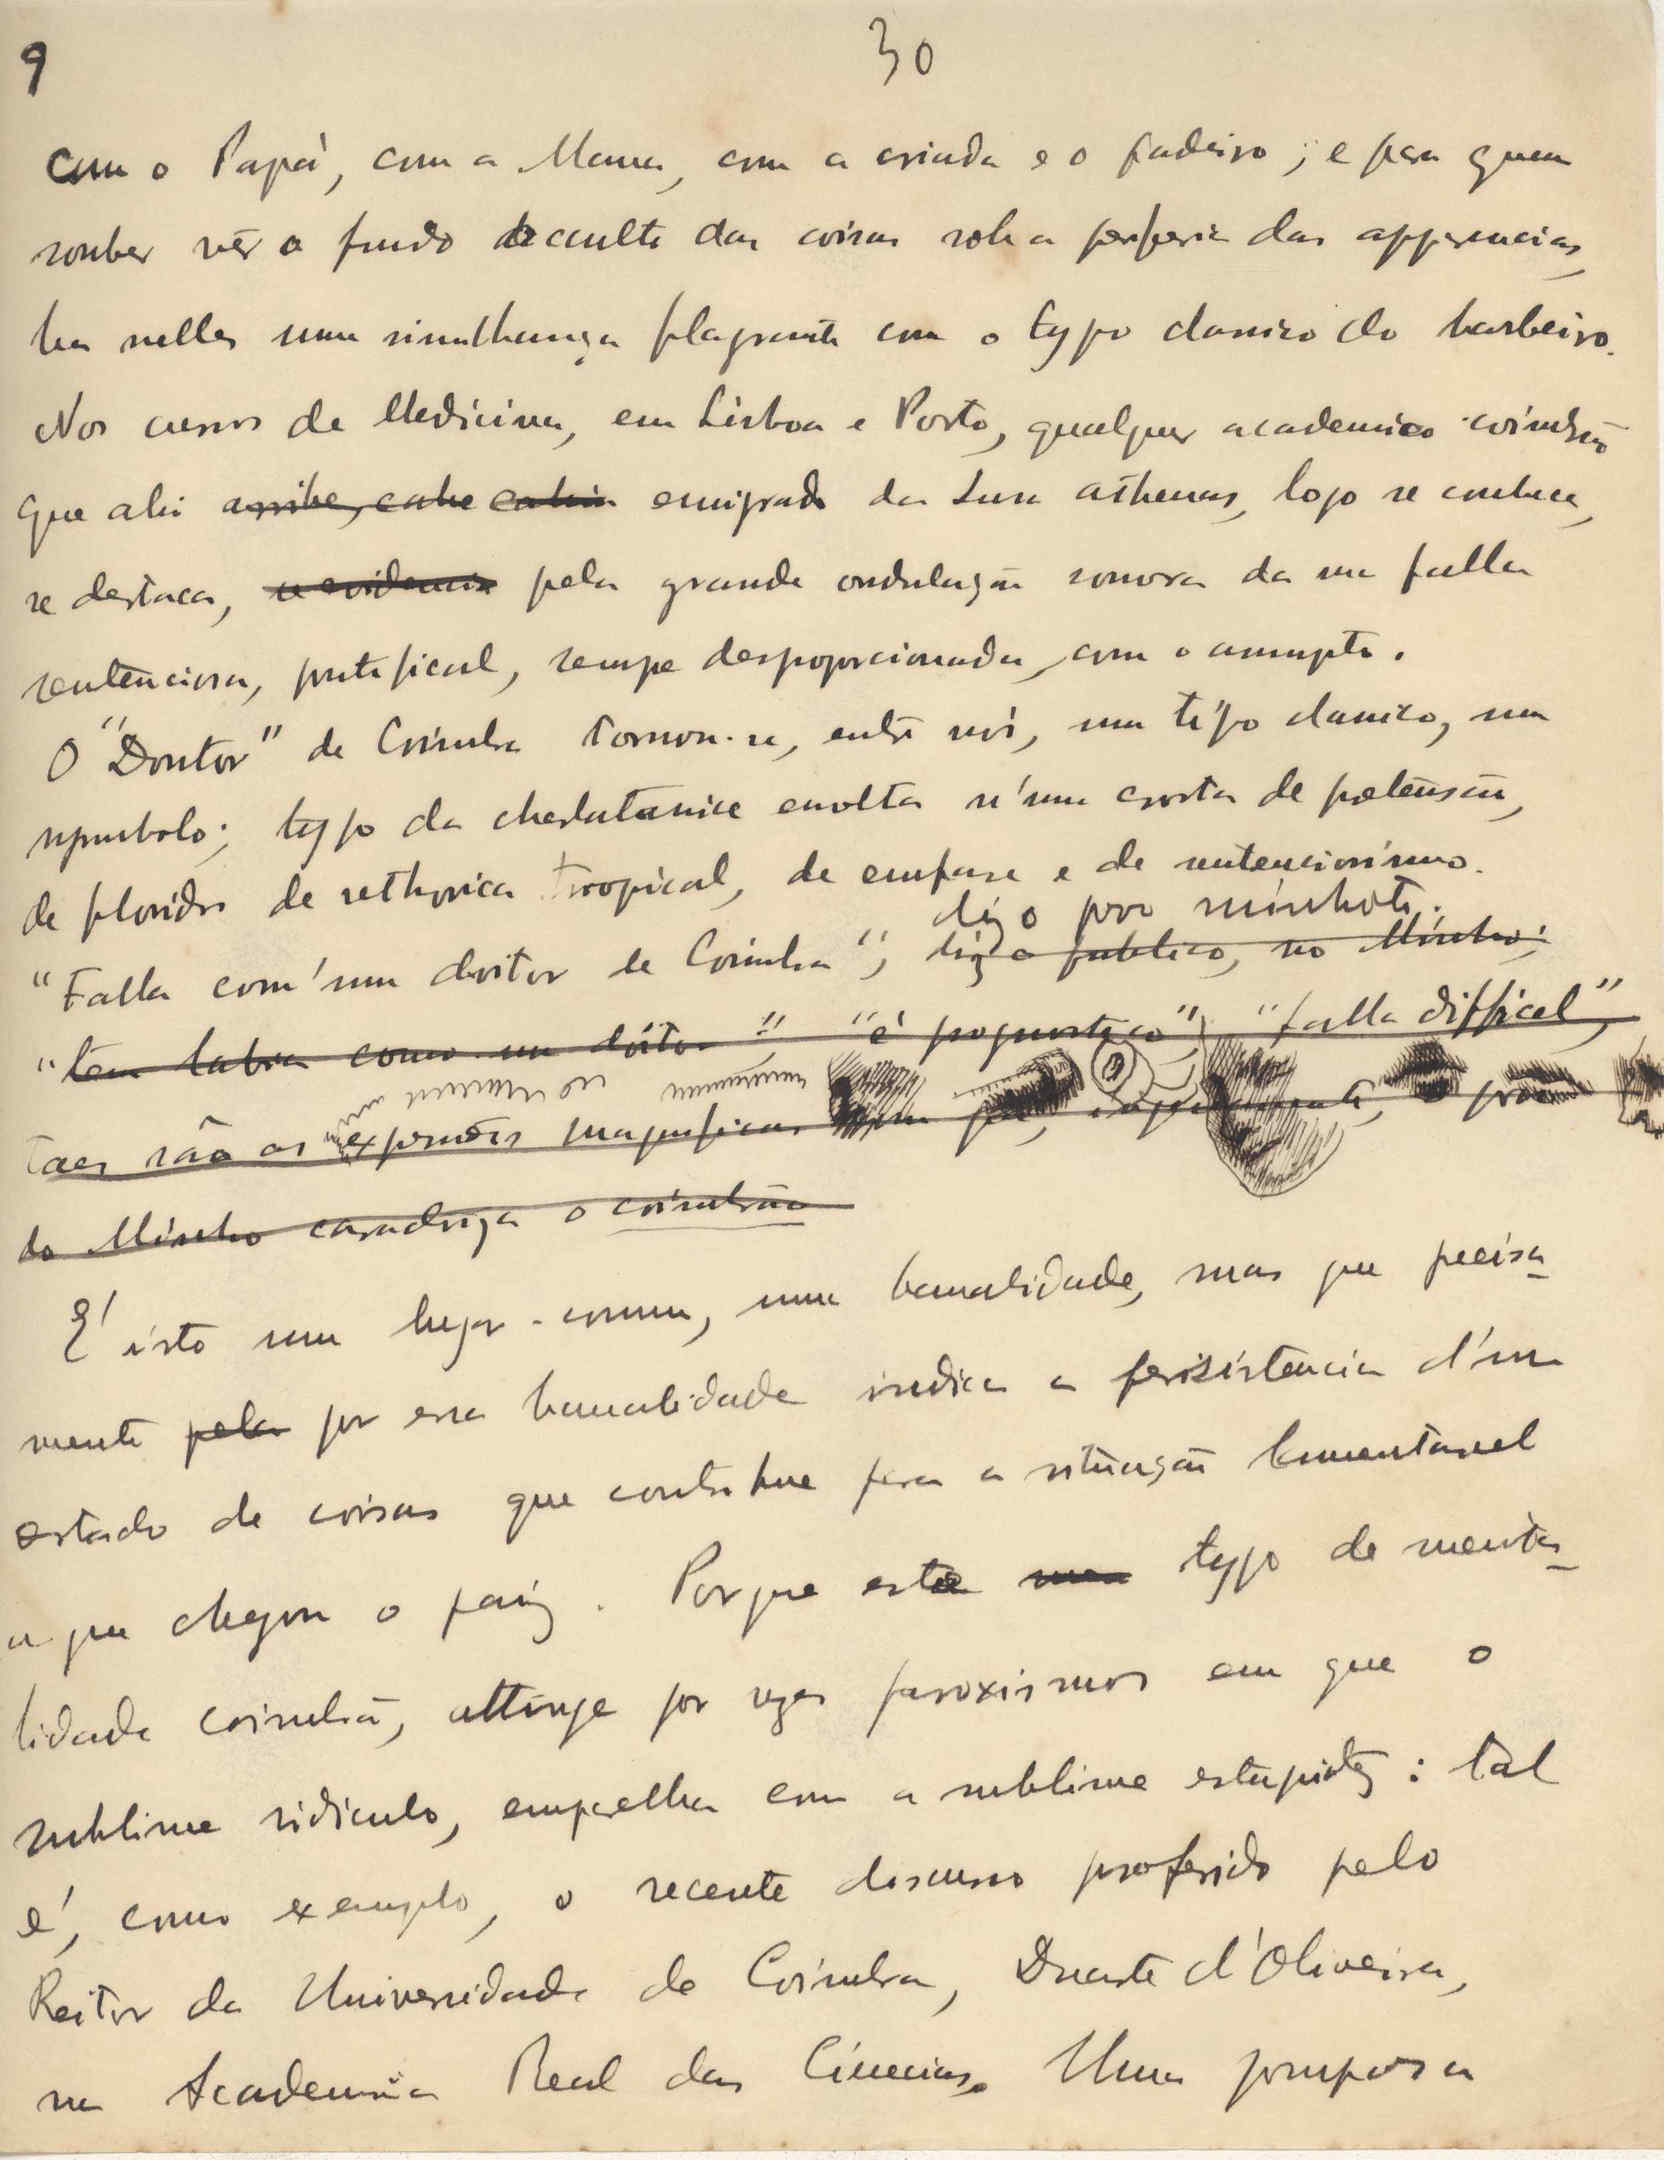 9
30
com o Papá, com a Mamã, com a criada e o padeiro; e para quem
souber vêr o fundo occulto das coisas sob a periferia das apparencias,
ha nelles uma similhança flagrante com o typo classico do barbeiro.
Nos cursos de Medicina, em Lisboa e Porto, qualquer academico coimbrão
que ahi arribe, cahe cahia emigrado da Lusa athenas, logo se conhece,
se destaca, se evidencia pela grande ondulação sonora da sua falla
sentenciosa, pontifical, sempre desproporcionada, com o assumpto.
O "Doutor" de Coimbra tornou-se, entre nós, um typo classico, um
symbolo; typo da charlatanice envolta n'uma crosta de pretensão,
de floridos de rethorica tropical, de emfase e de sentenciosismo.
diz o povo minhoto.
"Falla com'um doitor de Coimbra", diz o publico, no Minho;
"tem labia como um dôitor", "é prognostico", "falla difficel",
taes são as expressões magnificas com que, o povo
do Minho caradriza o coimbrão
É isto um lugar-commum, uma banalidade, mas que precisa-
mente pela por essa banalidade indica a persistencia d'um
estado de coisas que contribue para a situação lamentavel
a que chegou o paiz. Porque este um typo de menta-
lidade coimbrã, attinge por vezes paroxismos em que o
sublime ridiculo, emparelha com a sublime estupidez: tal
é, como exemplo, o recente discurso proferido pelo
Reitor da Universidade de Coimbra, Duarte d'Oliveira,
na Academia Real das Ciencias. Uma pomposa